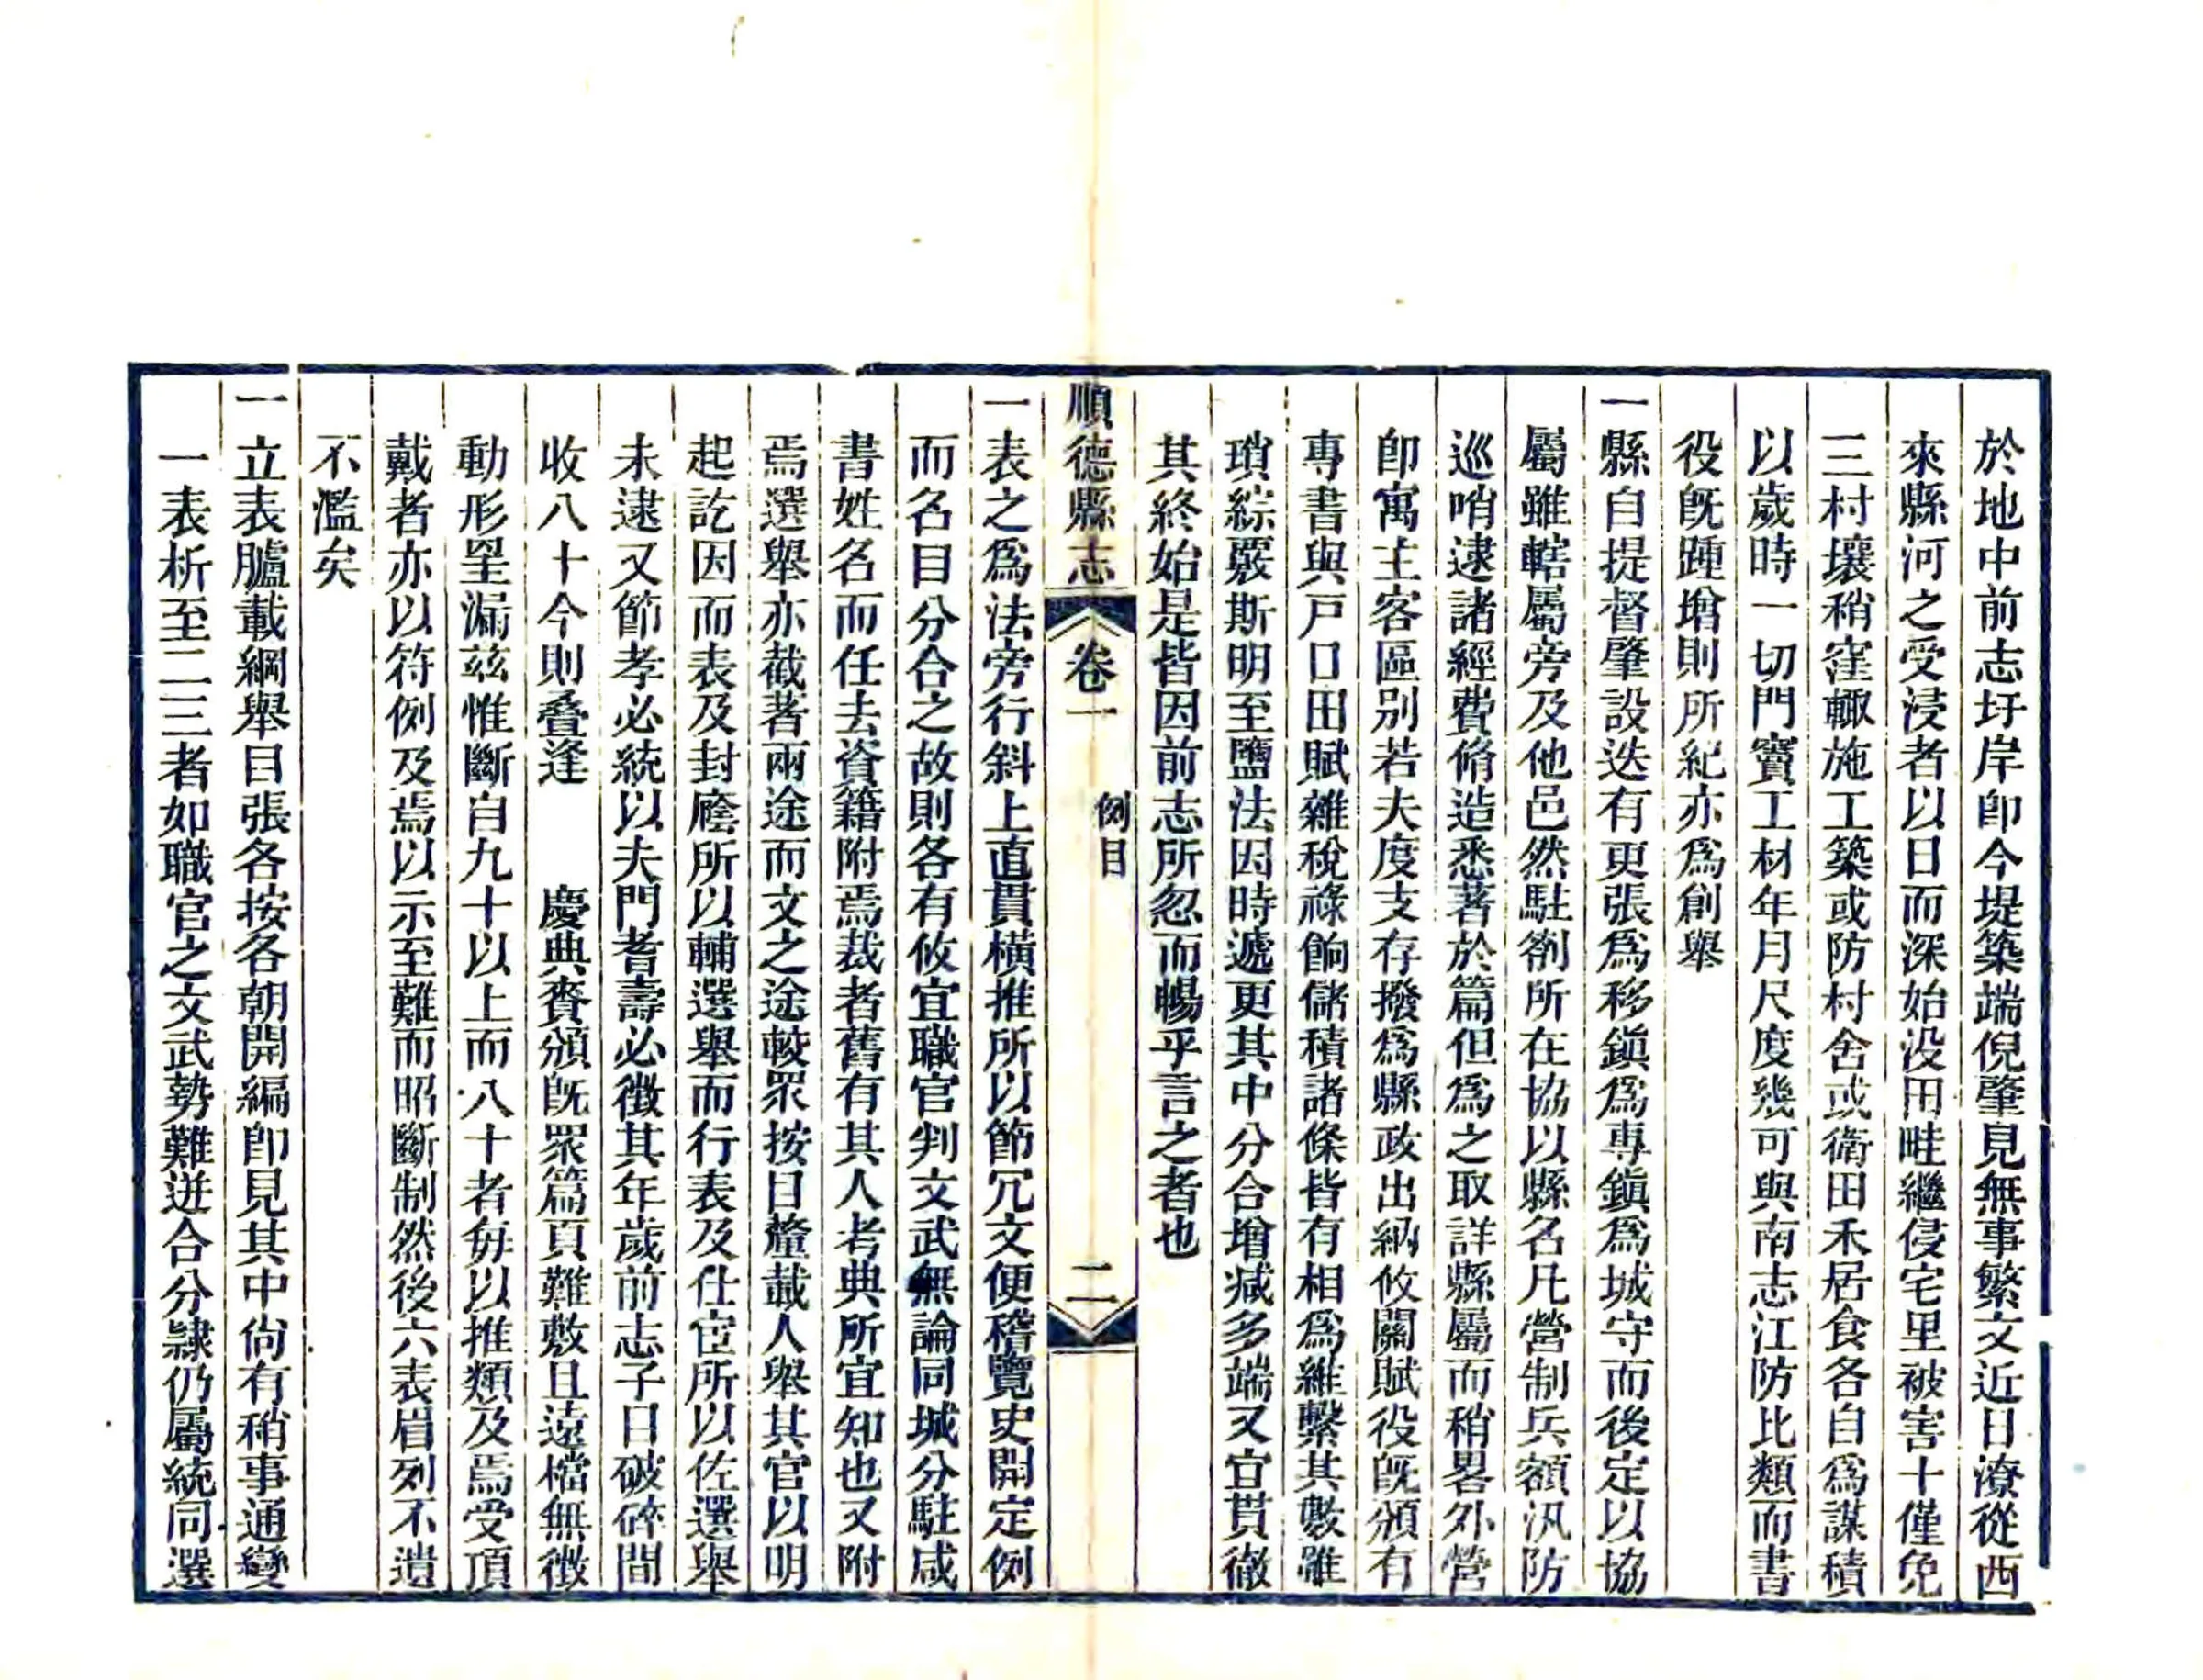 於地中前志圩岸卽今堤築端倪肇見無事繁文近日潦從西
來縣河之受浸者以日而深始没田畦繼侵宅里被害十僅免
三村壤稍窪輙施工築或防村舍或衛田禾居食各自爲謀積
以歲時一切門竇工材年月尺度幾可與南志江防比類而書
役旣踵增則所紀亦爲創舉
一縣自提督肇設迭有更張爲移鎭爲專鎭爲城守而後定以協
屬雖轄屬旁及他邑然駐劄所在協以縣名凡營制兵額汛防
巡哨逮諸經費脩造悉著於篇但爲之取詳縣屬而稍畧外營
卽寓主客區别若夫度支存撥爲縣政出納攸關賦役旣頒有
專書與戸口田賦雜稅祿餉儲積諸條皆有相爲維繫其數雖
瑣綜覈斯明至鹽法因時遞更其中分合增减多端又宜貫徹
其終始是皆因前志所忽而暢乎言之者也
順德縣志
卷一
例目
二
一表之爲法旁行斜上直貫橫推所以節冗文便稽覽史開定例
而名目分合之故則各有攸宜職官判文武無論同城分駐咸
書姓名而任去資籍附焉裁者舊有其人考典所宜知也又附
焉選舉亦截著兩途而文之途較眾按目釐載人舉其官以明
起訖因而表及封廕所以輔選舉而行表及仕宦所以佐選舉
未逮又節孝必統以夫門耆壽必徵其年歲前志子目破碎間
收八十今則叠逢　慶典賚頒旣眾篇頁難敷且遠檔無徵
動形罣漏兹惟斷自九十以上而八十者毎以推類及焉受頂
戴者亦以符例及焉以示至難而昭斷制然後六表眉列不遺
不濫矣
一立表臚載綱舉目張各按各朝開編卽見其中尙有稍事通變
一表析至二三者如職官之文武勢難迸合分隷仍屬統同選